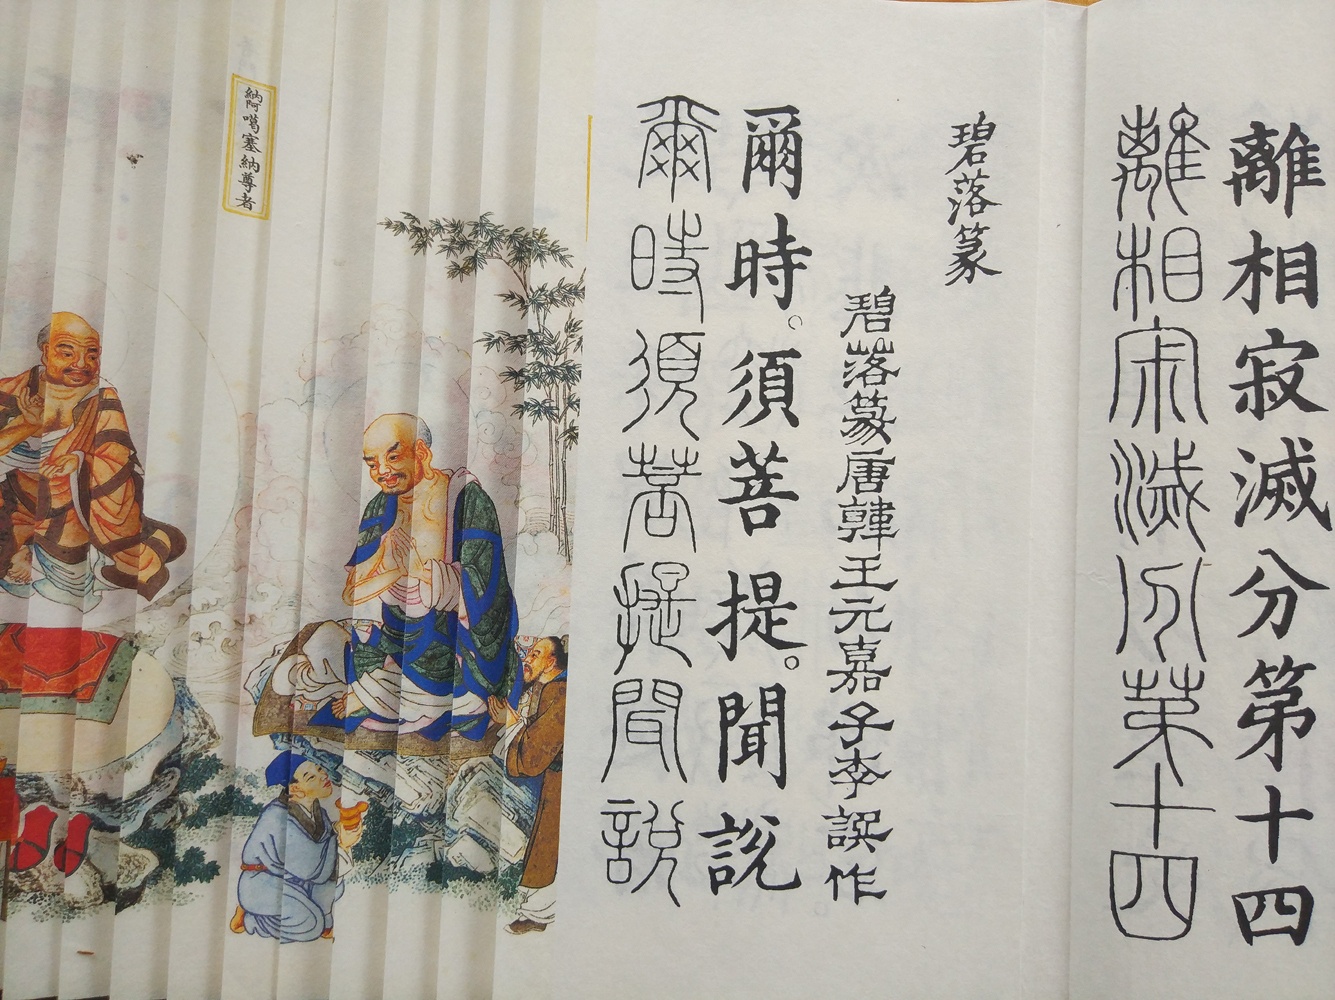 離相寂滅分第十四
離相寂滅分第十四
碧落篆
碧落篆唐韓王元嘉子李譔作
爾時。須菩提。聞說
爾時須菩提聞說
納阿噶塞納尊者